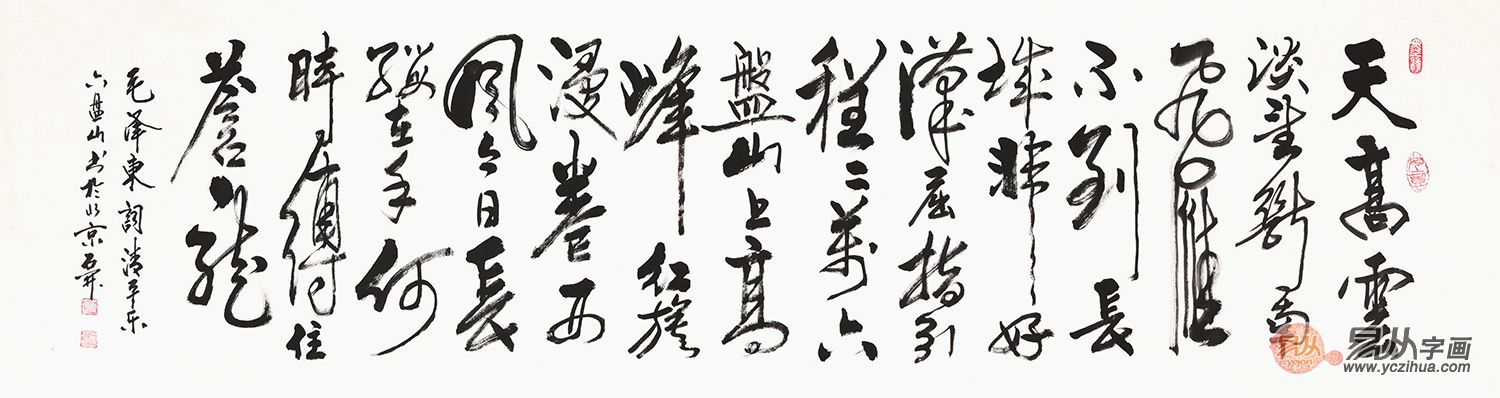 天高雲
淡望斷南
飛雁
不到長
城非好
漢屈指行
程二萬六
盤山上高
峰紅旗
漫卷西
風今日長
纓在手何
時縛住
蒼龍
毛澤東詞清平樂
六盘山书於北京
易从字画
www.yczihua.com